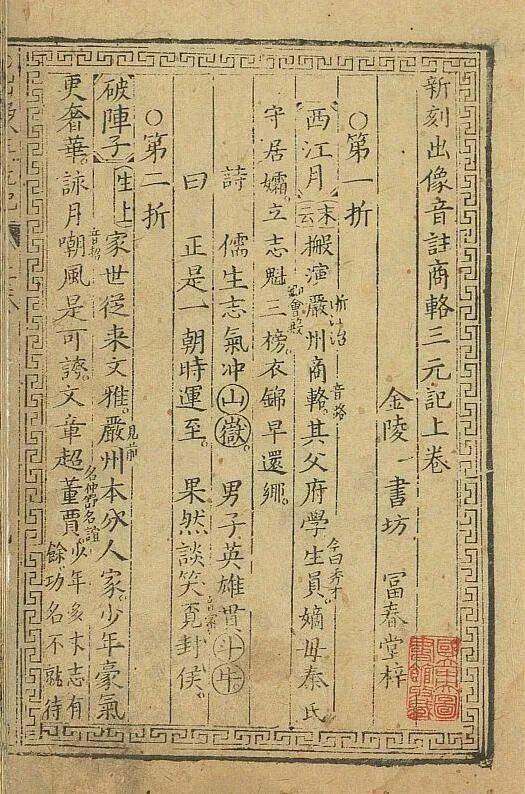 新刻出像音註商輅三元記上卷
金陵一書坊 冨春堂梓
○第一折
西江月 末云 搬演嚴州商輅。其父府學生員。嫡母秦氏
音路
今曰秀才
守居孀。立志魁三榜。衣錦早還鄉。
會殿
詩 儒生志氣冲山嶽 男子英雄貫斗牛
曰 正是一朝時運至。 果然談笑覓封侯。
○第二折
破陣子 生上 家世從来文雅。嚴州本分人家。少年豪氣
見前
更奢華。詠月嘲風是可誇。文章超董賈。
音招
名仲舒名誼
少年多才志有
餘功名不就待